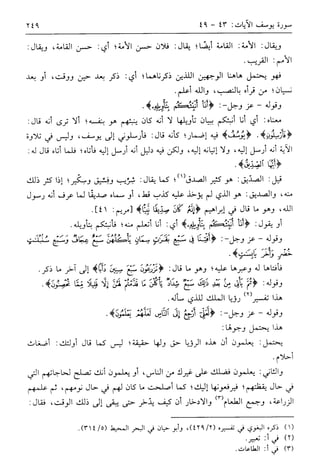 سورة يوسف الآيات: ٤٣ - ٤٩
٢٤٩
ويقال: الأمة: القامة أيضًا؛ يقال: فلان حسن الأمة؛ أي: حسن القامة، ويقال:
الأمم: القريب.
فهو يحتمل هاهنا الوجهين اللذين ذكرناهما؛ أي: ذكر بعد حين ووقت، أو بعد
نسيان؛ من قرأه بالنصب، والله أعلم.
وقوله - عز وجل-: ﴿أَنَا أُنَبِّئُكُم بِتَأْوِيلِهِ﴾.
معناه: أي أنا أنبئكم ببيان تأويلها لا أنه كان ينبئهم هو بنفسه؛ ألا ترى أنه قال:
﴿فَأَرْسِلُونِ. يُوسُفُ﴾ فيه إضمار؛ كأنه قال: فأرسلوني إلى يوسف، وليس في تلاوة
الآية أنه أرسل إليه، ولا إتيانه إليه، ولكن فيه دليل أنه أرسل إليه فأتاه؛ فلما أتاه قال له:
﴿أَيُّهَا الصِّدِّيقُ﴾.
قيل: الصدّيق: هو كثير الصدق(١)، كما يقال: شرّيب وفسّيق وسكّير؛ إذا كثر ذلك
منه، والصديق: هو الذي لم يؤخذ عليه كذب قط، أو سماه صديقًا لما عرف أنه رسول
الله، وهو ما قال في إبراهيم ﴿إِنَّهُ كَانَ صِدِّيقًا نَّبِيًّا﴾ [مريم: ٤١].
أو يقول: ﴿أَنَا أُنَبِّئُكُم بِتَأْوِيلِهِ﴾ أي: أنا أتعلم منه؛ فأنبئكم بتأويله.
وقوله - عز وجل-: ﴿أَفْتِنَا فِي سَبْعِ بَقَرَاتٍ سِمَانٍ يَأْكُلُهُنَّ سَبْعٌ عِجَافٌ وَسَبْعِ سُنبُلَاتٍ
خُضْرٍ وَأُخَرَ يَابِسَاتٍ﴾.
فأفتاها له وعبرها عليه؛ وهو ما قال: ﴿تَزْرَعُونَ سَبْعَ سِنِينَ دَأَبًا﴾ إلى آخر ما ذكر.
وقوله: ﴿ثُمَّ يَأْتِي مِن بَعْدِ ذَلِكَ سَبْعٌ شِدَادٌ يَأْكُلْنَ مَا قَدَّمْتُمْ لَهُنَّ إِلَّا قَلِيلًا مِّمَّا تُحْصِنُونَ﴾.
هذا تفسير(٢) رؤيا الملك للذي سأله.
وقوله - عز وجل-: ﴿لَّعَلِّي أَرْجِعُ إِلَى النَّاسِ لَعَلَّهُمْ يَعْلَمُونَ﴾.
هذا يحتمل وجوهًا:
يحتمل: يعلمون أن هذه الرؤيا حق ولها حقيقة؛ ليس كما قال أولئك: أضغاث
أحلام.
والثاني: يعلمون فضلك على غيرك من الناس، أو يعلمون أنك تصلح لحاجاتهم التي
في حال يقظتهم؛ فيرفعونها إليك؛ كما أصلحت ما كان لهم في حال نومهم، ثم علمهم
الزراعة، وجمع الطعام(٣) والادخار أن كيف يدّخر حتى يبقى إلى ذلك الوقت، فقال:
(١) ذكره البغوي في تفسيره (٤٢٩/٢)، وأبو حيان في البحر المحيط (٣١٤/٥).
(٢) في أ: تعبير.
(٣) في أ: الطاعات.